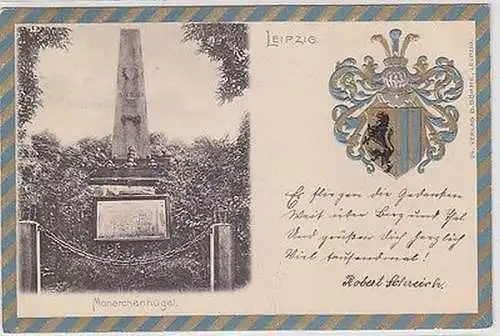 LEIPZIG.
24. VERLAG B. BÖHME, LEIPZIG.
Es fliegen die Gedanken
Weit über Berg und Thal
Und grüßen Dich herzlich
Viel tausendmal!
Robert
Monarchenhügel.